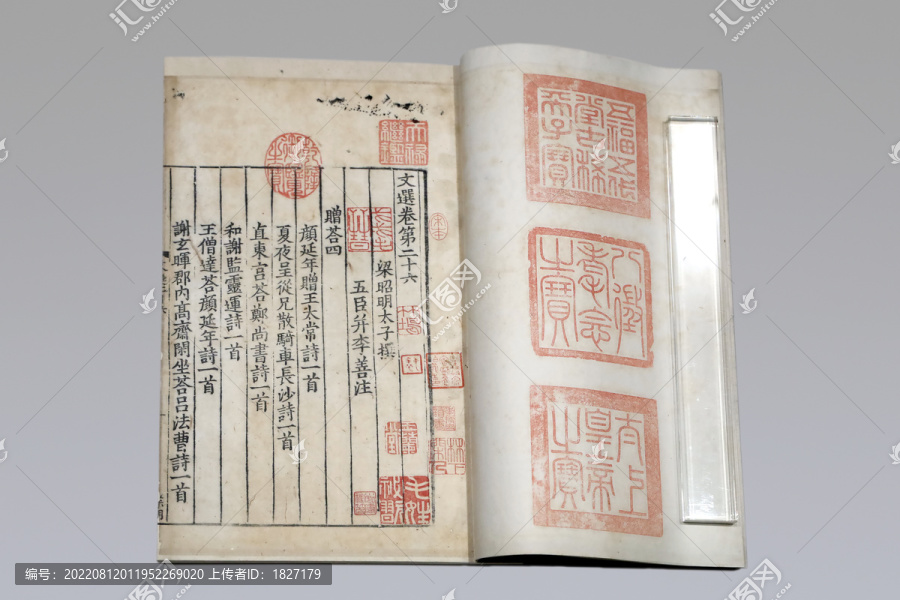 五福五代
堂古稀
天子寶
八徵
耄念
之寶
太上
皇帝
之寶
天祿
繼鑑
乾隆
御覽
之寶
文選卷第二十六
梁昭明太子撰
五臣并李善注
贈荅四
顔延年贈王太常詩一首
夏夜呈從兄散騎車長沙詩一首
直東宫荅鄭尚書詩一首
和謝監靈運詩一首
王僧達荅顔延年詩一首
謝玄暉郡内髙齋閑坐荅吕法曹詩一首
编号：20220812011952269020 上传者ID：1827179
汇图网